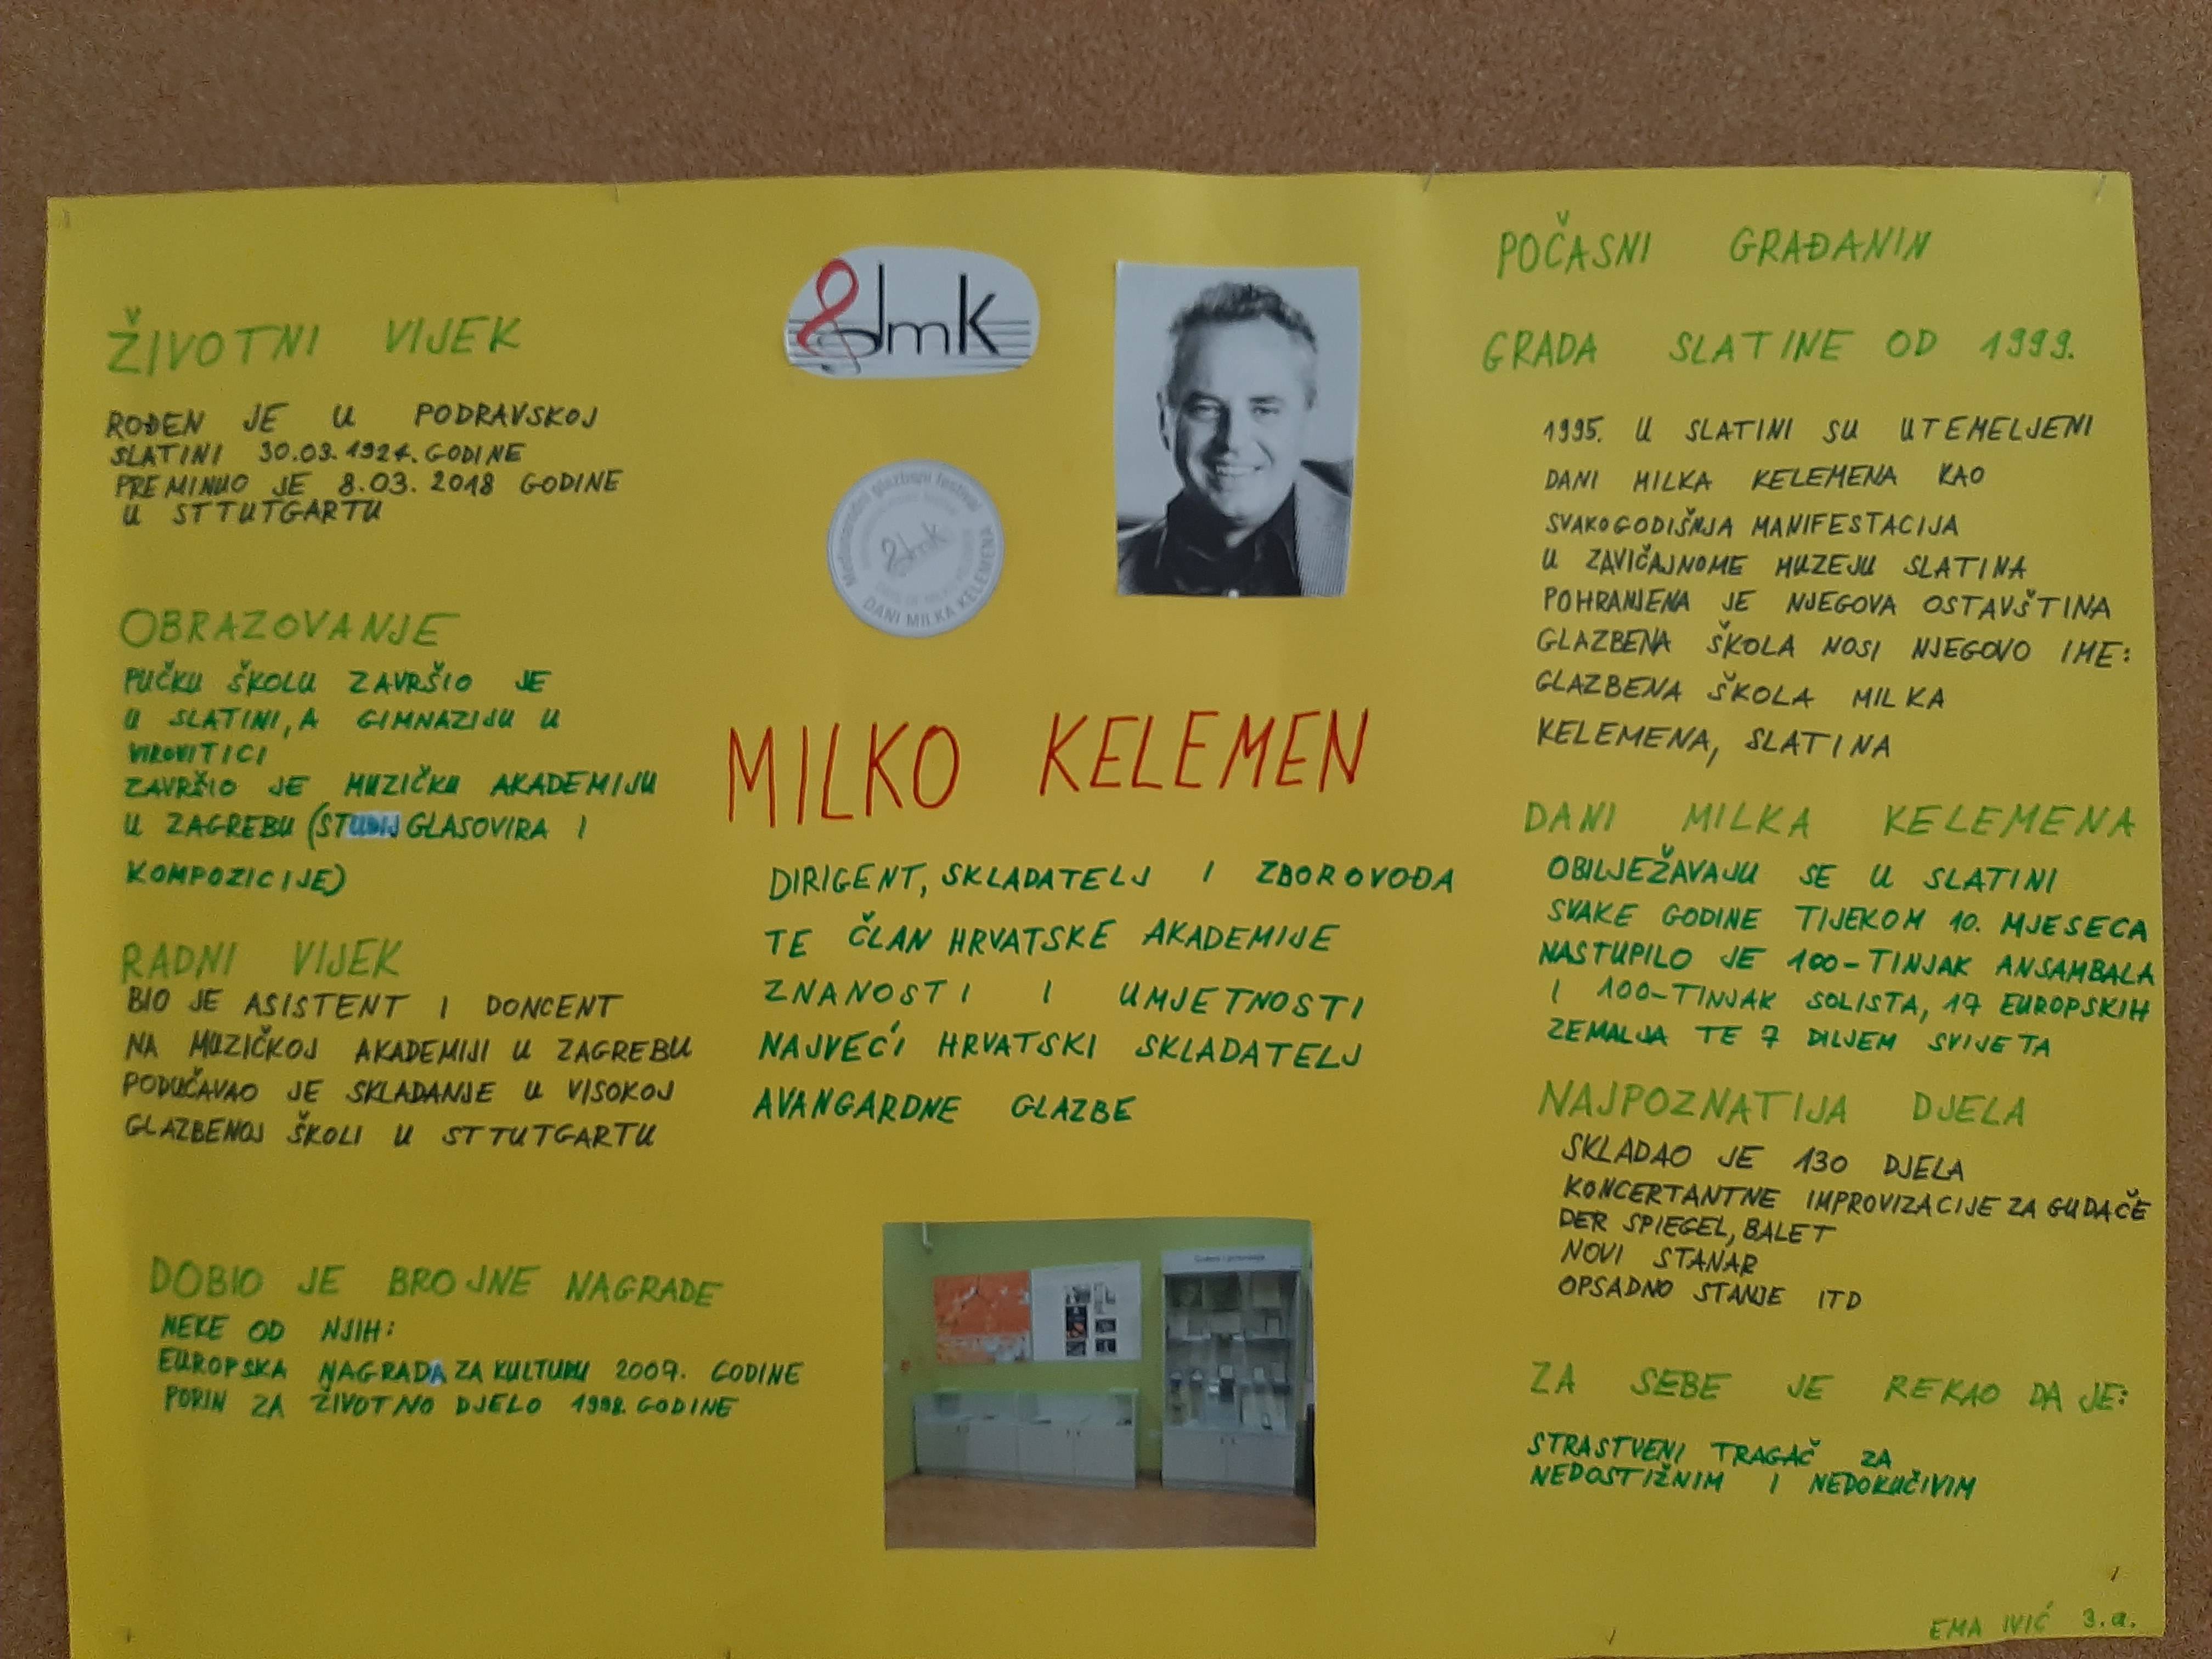 ŽIVOTNI VIJEK
ROĐEN JE U PODRAVSKOJ
SLATINI 30.03.1924. GODINE
PREMINUO JE 8.03. 2018 GODINE
U STTUTGARTU
OBRAZOVANJE
PUČKU ŠKOLU ZAVRŠIO JE
U SLATINI, A GIMNAZIJU U
VIROVITICI
ZAVRŠIO JE MUZIČKU AKADEMIJU
U ZAGREBU (STUDIJ GLASOVIRA I
KOMPOZICIJE)
RADNI VIJEK
BIO JE ASISTENT I DONCENT
NA MUZIČKOJ AKADEMIJI U ZAGREBU
PODUČAVAO JE SKLADANJE U VISOKOJ
GLAZBENOJ ŠKOLI U STTUTGARTU
DOBIO JE BROJNE NAGRADE
NEKE OD NJIH:
EUROPSKA NAGRADA ZA KULTURU 2007. GODINE
PORIN ZA ŽIVOTNO DJELO 1998. GODINE
dmk
Međunarodni glazbeni festival
dmk
DANI MILKA KELEMENA
MILKO KELEMEN
DIRIGENT, SKLADATELJ I ZBOROVOĐA
TE ČLAN HRVATSKE AKADEMIJE
ZNANOSTI I UMJETNOSTI
NAJVEĆI HRVATSKI SKLADATELJ
AVANGARDNE GLAZBE
POČASNI GRAĐANIN
GRADA SLATINE OD 1999.
1995. U SLATINI SU UTEMELJENI
DANI MILKA KELEMENA KAO
SVAKOGODIŠNJA MANIFESTACIJA
U ZAVIČAJNOME MUZEJU SLATINA
POHRANJENA JE NJEGOVA OSTAVŠTINA
GLAZBENA ŠKOLA NOSI NJEGOVO IME:
GLAZBENA ŠKOLA MILKA
KELEMENA, SLATINA
DANI MILKA KELEMENA
OBILJEŽAVAJU SE U SLATINI
SVAKE GODINE TIJEKOM 10. MJESECA
NASTUPILO JE 100-TINJAK ANSAMBALA
I 100-TINJAK SOLISTA, 17 EUROPSKIH
ZEMALJA TE 7 DILJEM SVIJETA
NAJPOZNATIJA DJELA
SKLADAO JE 130 DJELA
KONCERTANTNE IMPROVIZACIJE ZA GUDAČE
DER SPIEGEL, BALET
NOVI STANAR
OPSADNO STANJE ITD
ZA SEBE JE REKAO DA JE:
STRASTVENI TRAGAČ ZA
NEDOSTIŽNIM I NEDOKUČIVIM
EMA IVIĆ 3.a.